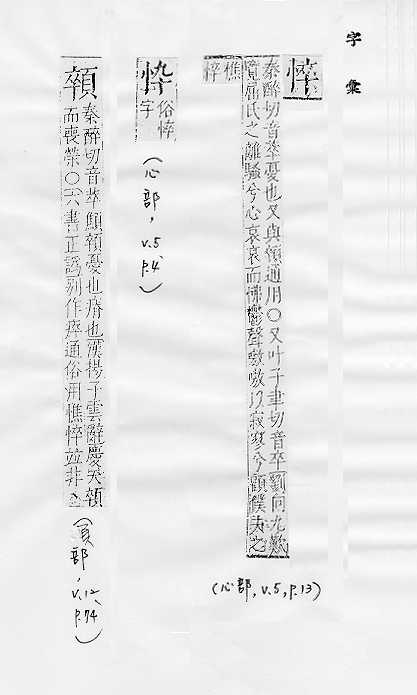 字彙
悴
秦醉切音萃憂也又與顇通用○又叶子聿切音卒劉向九歎
覽屈氏之離騷兮心哀哀而怫鬱聲嗷嗷以寂寥兮顧僕夫之
憔
悴
(心部, v.5, p.13)
忰
俗悴
字
(心部, v.5, p.4)
顇
秦醉切音萃顦顇憂也瘠也漢揚子雲辭慶夭顇
而喪榮○六書正譌別作瘁通俗用憔悴竝非
(頁部, v.12, p.74)